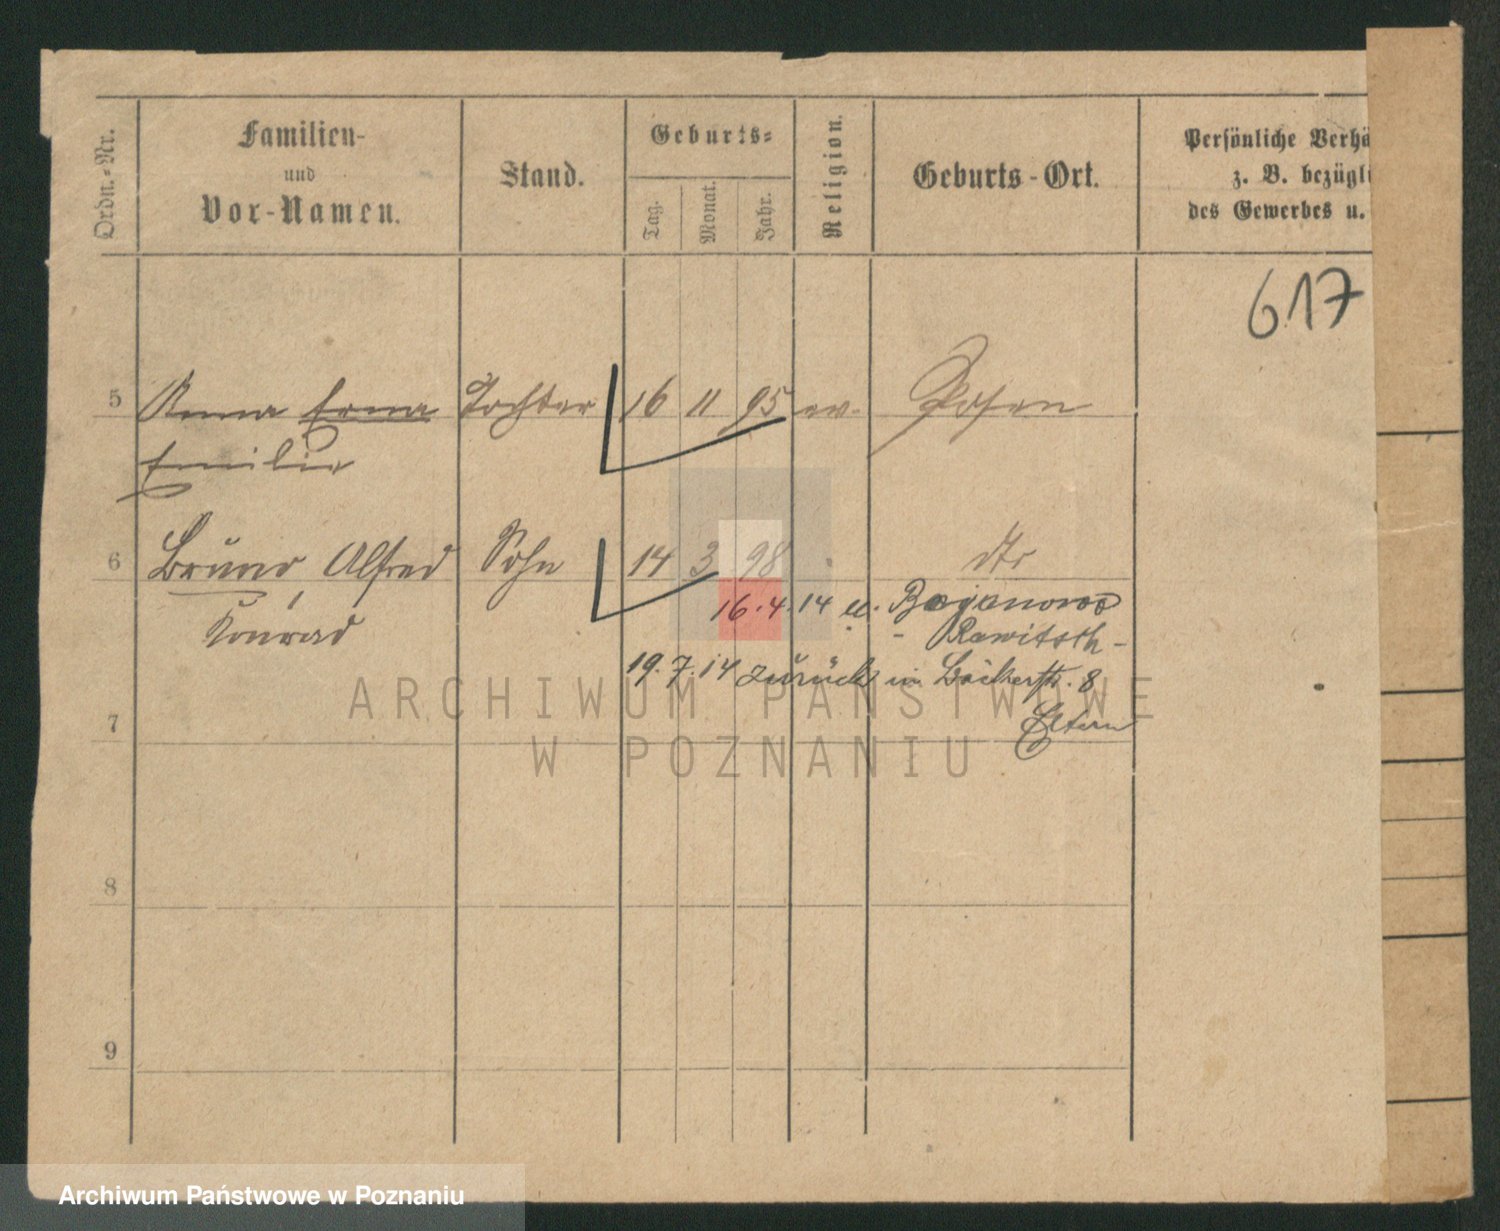 Ordn.-Nr.
Familien-
und
Vor-Namen.
Stand.
Geburts-
Tag.
Monat.
Jahr.
Religion.
Geburts-Ort.
Persönliche Verhä
z. B. bezügli
des Gewerbes u.
617
5 Anna Erna Tochter 16 11 95 ev. Posen
Emilie
6 Bruno Alfred Sohn 14 3 98 dto
Konrad
16.4.14 Bojanowo
Rawitsch
19.7.14 zurück in Bäckerstr. 8
Eltern
7
8
9
ARCHIWUM PAŃSTWOWE
W POZNANIU
Archiwum Państwowe w Poznaniu